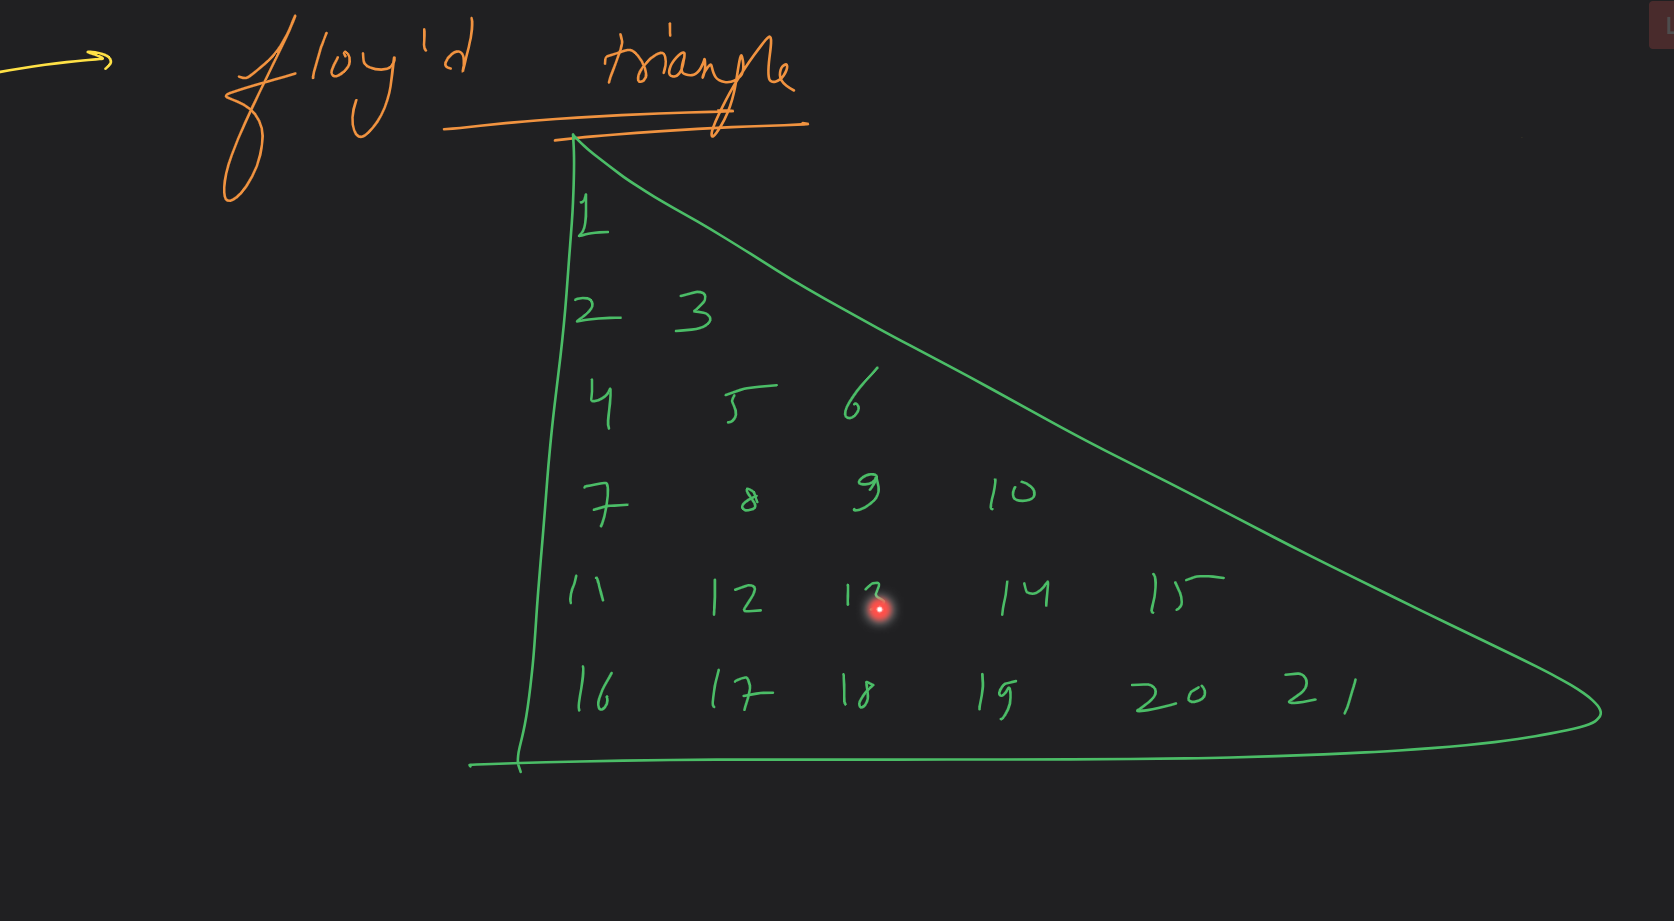 floy'd triangle
1
2 3
4 5 6
7 8 9 10
11 12 13 14 15
16 17 18 19 20 21